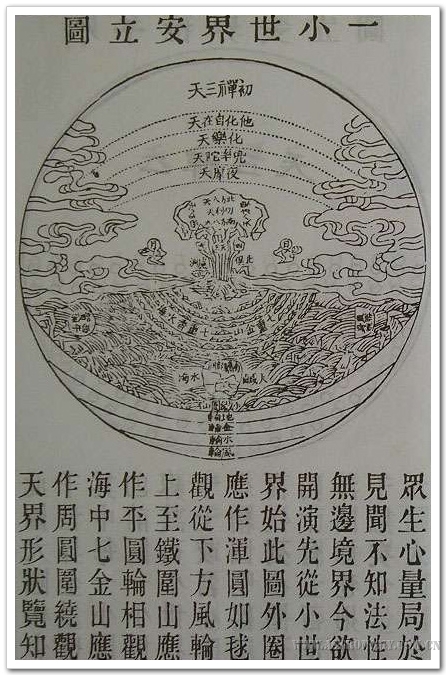 一小世界安立圖
初禪三天
他化自在天
化樂天
兜率陀天
夜摩天
地輪
金輪
水輪
風輪
眾生心量局於
見聞不知法性
無邊境界今欲
開演先從小世
界始此圖外圈
應作渾圓如球
觀從下方風輪
上至鐵圍山應
作平圓輪相觀
海中七金山應
作周圓圍繞觀
天界形狀覽知